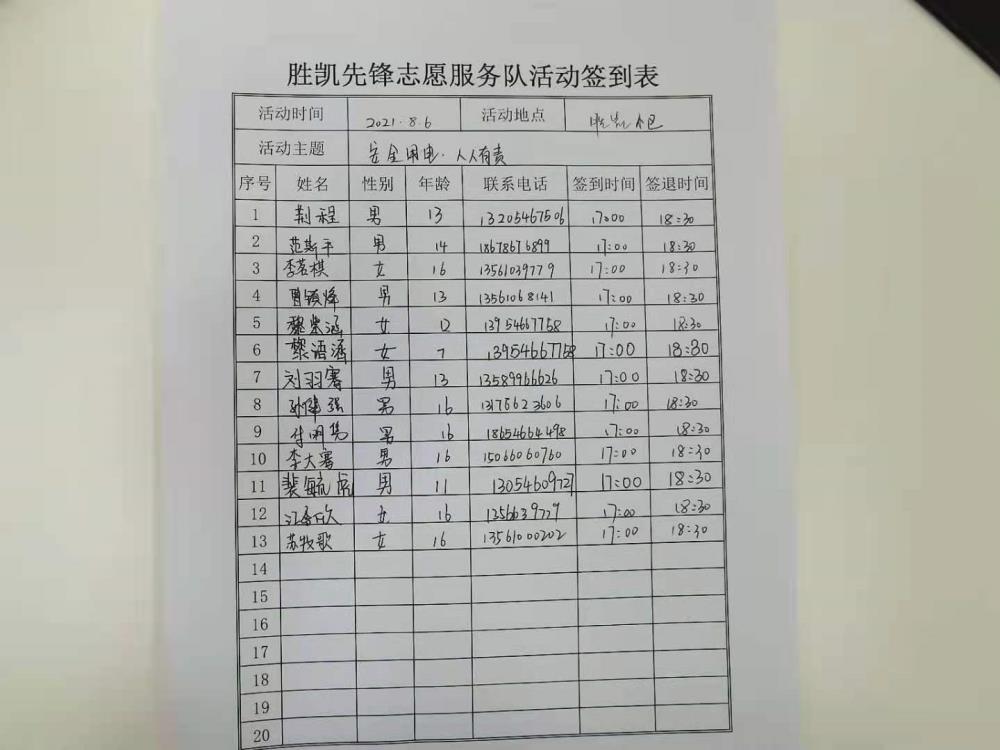 胜凯先锋志愿服务队活动签到表
活动时间 2021.8.6 活动地点
活动主题 安全用电·人人有责
序号 姓名 性别 年龄 联系电话 签到时间 签退时间
1 荆程 男 13 13205467506 17:00 18:30
2 范斯平 男 14 18678676899 17:00 18:30
3 李茗棋 女 16 13561039779 17:00 18:30
4 男 13 13561068141 17:00 18:30
5 黎棠涵 女 12 13954667758 17:00 18:30
6 黎语涵 女 7 13954667758 17:00 18:30
7 刘羽骞 男 13 13589966626 17:00 18:30
8 男 16 13175623606 17:00 18:30
9 男 16 18654664498 17:00 18:30
10 李大骞 男 16 15066060760 17:00 18:30
11 裴毓虎 男 11 13054609727 17:00 18:30
12 女 16 17:00 18:30
13 苏牧歌 女 16 13561000202 17:00 18:30
14
15
16
17
18
19
20